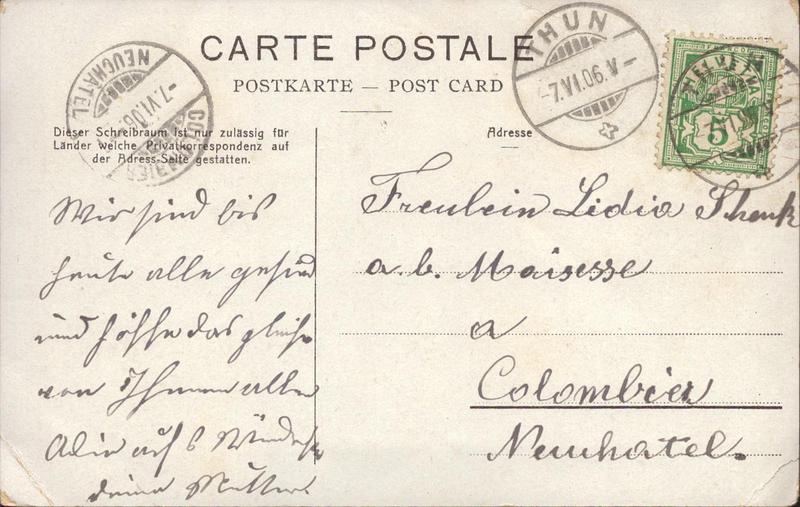 CARTE POSTALE
POSTKARTE — POST CARD
NEUCHATEL
-7.VI.06.
COLOMBIER
THUN
-7.VI.06.V-
HELVETIA
5
Dieser Schreibraum ist nur zulässig für
Länder welche Privatkorrespondenz auf
der Adress-Seite gestatten.
Adresse
Wir sind bis
heute alle gesund
und hoffe das gleiche
von Ihnen allen
Adie auf
deine Mutter
Freulein Lidia Schenk
a. b. Maisesse
a
Colombier
Neuchatel.